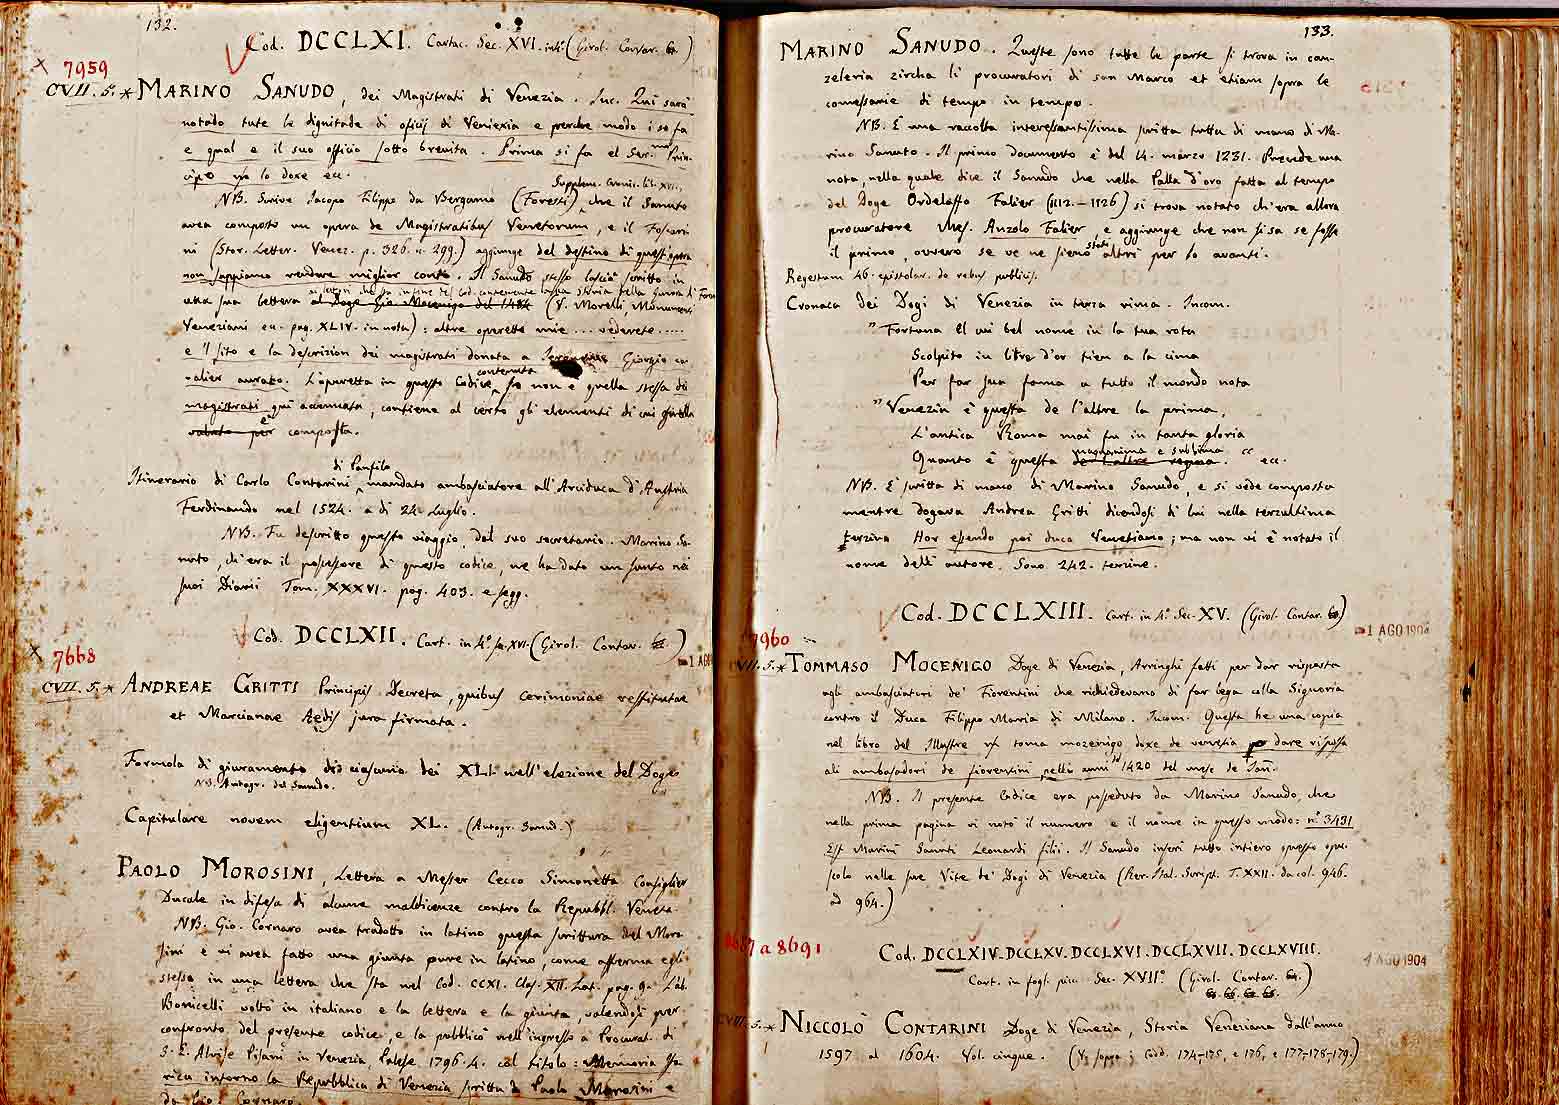 132.
Cod. DCCLXI. Cartac. Sec. XVI. in 4º (Girol. Contar. )
7959
CVII. 5. * MARINO SANUDO, dei Magistrati di Venezia. Inc. Qui sarà
notado tute le dignitade di oficij di Veniexia e perche modo i se fa
e qual e il suo officio sotto brevita. Prima si fa el Ser.mo Prin-
cipo vz lo doxe ecc.
NB. Scrive Jacopo Filippo da Bergamo (Foresti) Supplem. Cronic. lib. XVI., che il Sanuto
avea composto un opera de Magistratibus Venetorum, e il Foscari
ni (Stor. Letter. Venez. p. 326. n. 299.) aggiunge del destino di quest'opera
non sappiamo rendere miglior conto. Il Sanudo stesso lasciò scritto in
una sua lettera al Doge Gio. Mocenigo del 1484 (V. Morelli, Monumenti
Veneziani ec. pag. XLIV. in nota): altre operette mie .... vederete .....
e 'l sito e la descrizion dei magistrati donata a Giorgio ca-
valier aurato. L'operetta in questo Codice contenuta, se non è quella stessa dei
magistrati qui accennata, contiene al certo gli elementi di cui quella
è composta.
Itinerario di Carlo Contarini di Panfilo mandato ambasciatore all'Arciduca d'Austria
Ferdinando nel 1524. a dì 24. Luglio.
NB. Fu descritto questo viaggio dal suo secretario. Marino Sa-
nuto, ch'era il possessore di questo codice, ne ha dato un sunto nei
suoi Diarii Tom. XXXVI. pag. 403. e segg.
Cod. DCCLXII. Cart. in 4º. Sec. XVI. (Girol. Contar. )
7668
CVII. 5. * ANDREAE GRITTI Principis Decreta, quibus cerimoniae restitutae
et Marcianae Aedis jura firmata.
Formola di giuramento di ciascuno dei XLI. nell'elezione del Doge
NB. Autogr. del Sanudo.
Capitulare novem eligentium XL. (Autogr. Sanud.)
PAOLO MOROSINI, Lettera a Messer Cecco Simonetta Consiglier
Ducale in difesa di alcune maldicenze contro la Repubbl. Veneta.
NB. Gio. Cornaro avea tradotto in latino questa scrittura del Moro-
sini e vi avea fatto una giunta pure in latino, come afferma egli
stesso in una lettera che sta nel Cod. CCXI. Clas. XII. Lat. pag. 9. L'ab.
Bonicelli voltò in italiano e la lettera e la giunta, valendosi per
confronto del presente codice, e la pubblicò nell'ingresso a Procurat. di
S. E. Alvise Pisani in Venezia, Palese 1796. 4. col titolo: Memoria sto-
rica intorno la Repubblica di Venezia scritta da Paolo Morosini e
da Gio. Cornaro.
133.
MARINO SANUDO. Queste sono tutte le parte si trova in can-
zeleria zircha li procuratori di san Marco et etiam sopra le
comessarie di tempo in tempo.
NB. È una raccolta interessantissima scritta tutta di mano di Ma-
rino Sanuto. Il primo documento è del 14. marzo 1231. Precede una
nota, nella quale dice il Sanudo che nella Palla d'oro fatta al tempo
del Doge Ordelaffo Falier (1112.-1126) si trova notato ch'era allora
procuratore Mes. Anzolo Falier, e aggiunge che non si sa se fosse
il primo, ovvero se ve ne sieno stati altri per lo avanti.
Regestum 46. epistolar. de rebus publicis.
Cronaca dei Dogi di Venezia in terza rima. Incom.
" Fortuna el cui bel nome in la tua rota
Scolpito in litre d'or tien a la cima
Per far sua fama a tutto il mondo nota
" Venezia è questa de l'altre la prima,
L'antica Roma mai fu in tanta gloria
Quanto è questa magnanima e sublima. " ec.
NB. È scritta di mano di Marino Sanudo, e si vede composta
mentre dogava Andrea Gritti dicendosi di lui nella terzultima
terzina Hor essendo poi duca Venetiano; ma non vi è notato il
nome dell'autore. Sono 242. terzine.
Cod. DCCLXIII. Cart. in 4º. Sec. XV. (Girol. Contar. )
7960
1 AGO 1904
CVII. 5. * TOMMASO MOCENIGO Doge di Venezia, Arringhi fatti per dar risposta
agli ambasciatori de' Fiorentini che richiedevano di far lega colla Signoria
contro il Duca Filippo Maria di Milano. Incom. Questa he una copia
nel libro del Illustre mr toma mozenigo doxe de venesia per dare risposta
ali ambasadori de fiorentini nelli anni 1420 del mese de Zañ.
NB. Il presente Codice era posseduto da Marino Sanudo, che
nella prima pagina vi notò il numero e il nome in questo modo: nº 3431
Est Marini Sanuti Leonardi filii. Il Sanudo inserì tutto intiero questo opu-
scolo nelle sue Vite de' Dogi di Venezia (Rer. Ital. Script. T. XXII. da col. 946.
ad 964.)
a 8691
Cod. DCCLXIV. DCCLXV. DCCLXVI. DCCLXVII. DCCLXVIII.
4 AGO 1904
Cart. in fogl. picc. Sec. XVIIº. (Girol. Contar. 64.)
65. 66. 67. 68.
CVII. 5. * NICCOLÒ CONTARINI Doge di Venezia, Storia Veneziana dall'anno
1597 al 1604. Vol. cinque. (V. sopra i Codd. 174-175, e 176, e 177-178-179.)